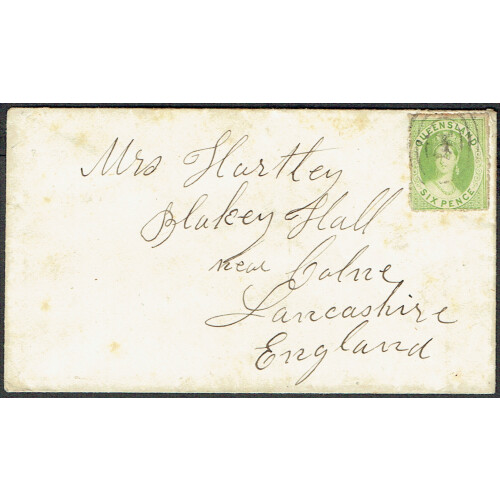 QUEENSLAND
SIX PENCE
Mrs Hartley
Blakey Hall
near Colne
Lancashire
England